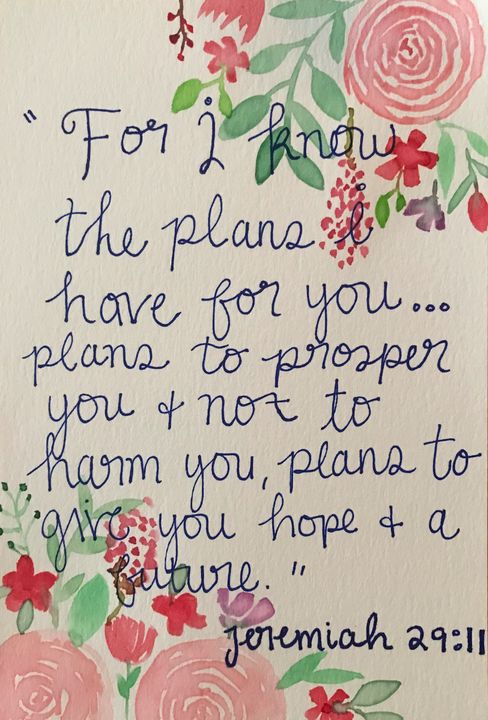 "For i know
the plans i
have for you...
plans to prosper
you & not to
harm you, plans to
give you hope & a
future."
Jeremiah 29:11